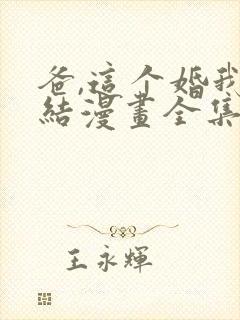 爸,這个婚我
結漫畫全集
王永輝